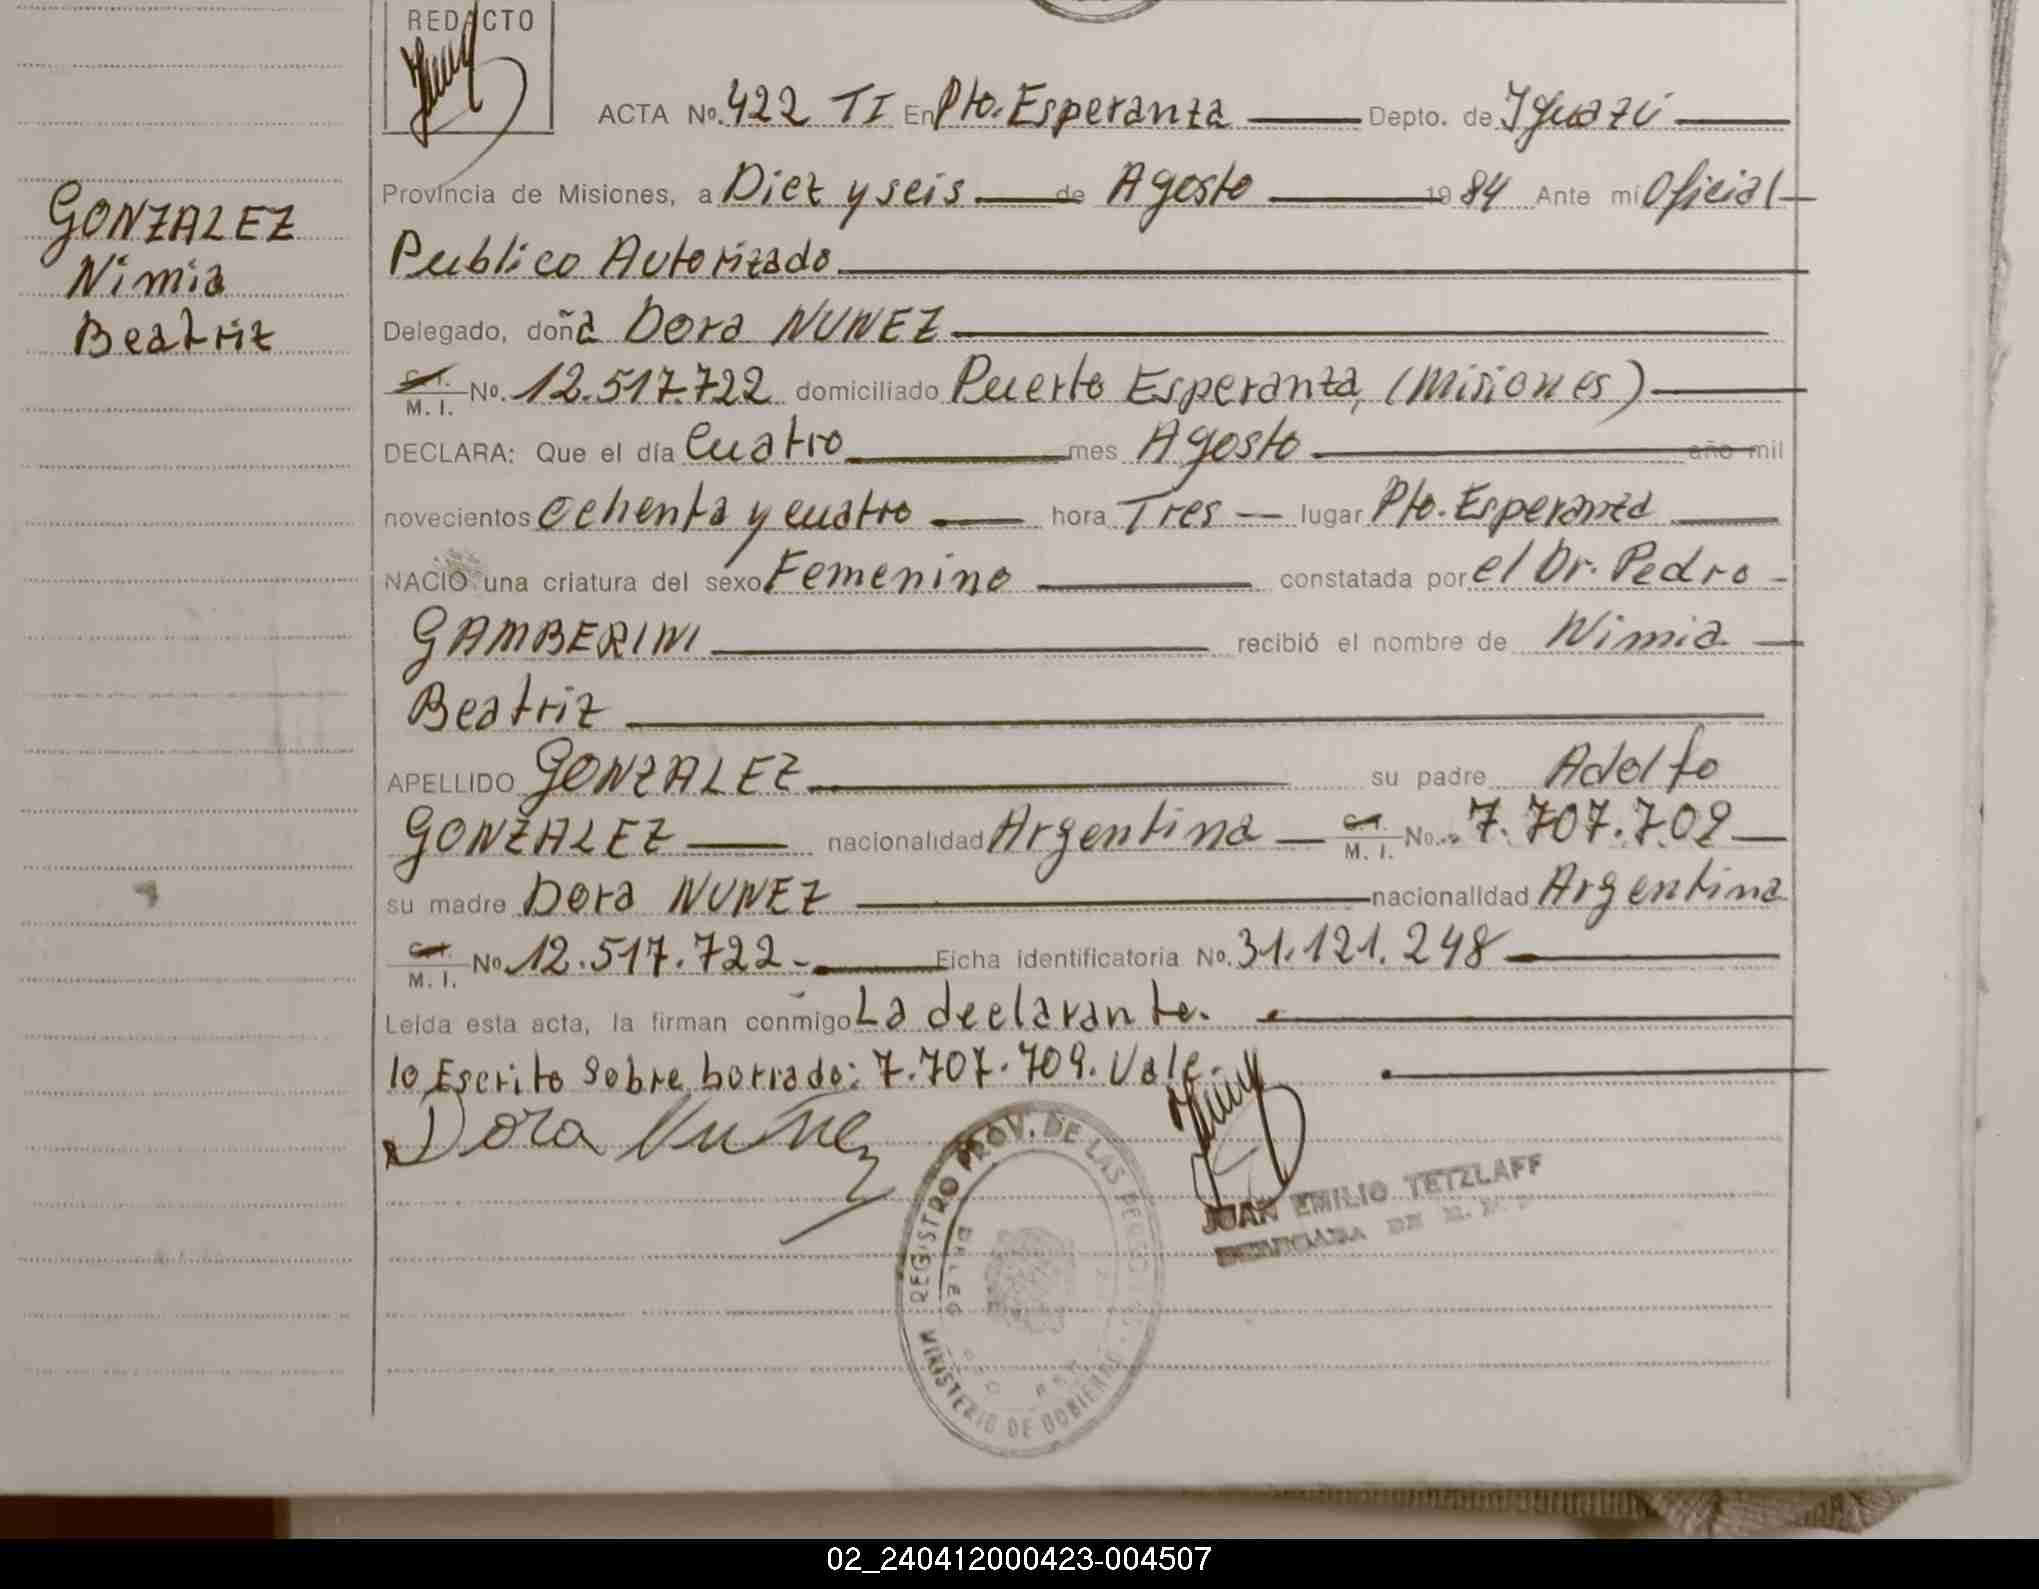 REDACTO
ACTA No. 422 TI En Pto. Esperanza Depto. de Iguazú
Provincia de Misiones, a Diez y seis de Agosto 1984 Ante mí Oficial
Publico Autorizado
GONZALEZ
Nimia
Beatriz
Delegado, doña Dora NUNEZ
C.I. M. I. No. 12.517.722 domiciliado Puerto Esperanza, (Misiones)
DECLARA: Que el día Cuatro mes Agosto año mil
novecientos ochenta y cuatro hora Tres lugar Pto. Esperanza
NACIO una criatura del sexo Femenino constatada por el Dr. Pedro
GAMBERINI recibió el nombre de Nimia
Beatriz
APELLIDO GONZALEZ su padre Adolfo
GONZALEZ nacionalidad Argentina C.I. M. I. No. 7.707.709
su madre Dora NUNEZ nacionalidad Argentina
C.I. M. I. No. 12.517.722.- Ficha identificatoria No. 31.121.248
Leída esta acta, la firman conmigo La declarante.
lo Escrito Sobre borrado: 7.707.709. Vale.
Dora Nuñez
REGISTRO PROV. DE LAS
MINISTERIO DE GOBIERNO
JUAN EMILIO TETZLAFF
02_240412000423-004507